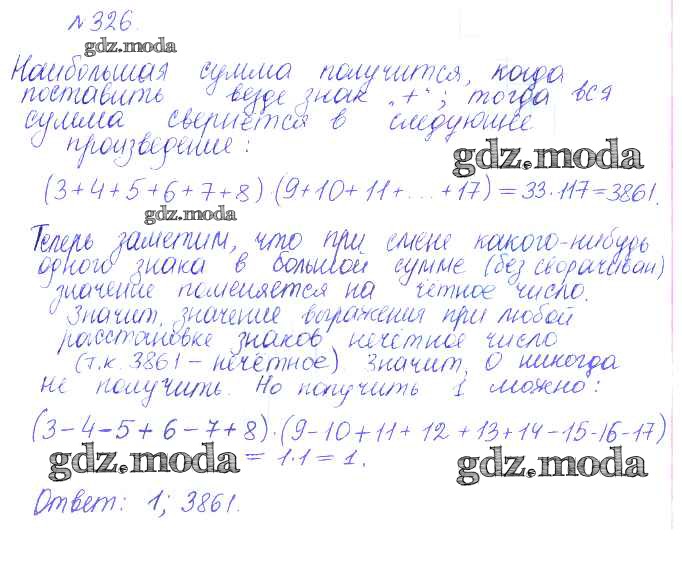 №326.
gdz.moda
Наибольшая сумма получится, когда
поставить везде знак „+“; тогда вся
сумма свернётся в следующее
произведение:
gdz.moda
(3+4+5+6+7+8)·(9+10+11+...+17)=33·117=3861.
gdz.moda
Теперь заметим, что при смене какого-нибудь
одного знака в большой сумме (без сворачиван)
значение поменяется на чётное число.
Значит, значение выражения при любой
расстановке знаков нечётное число
(т.к. 3861 – нечётное) Значит, 0 никогда
не получить. Но получить 1 можно:
(3-4-5+6-7+8)·(9-10+11+12+13+14-15-16-17)
gdz.moda = 1·1=1. gdz.moda
Ответ: 1; 3861.